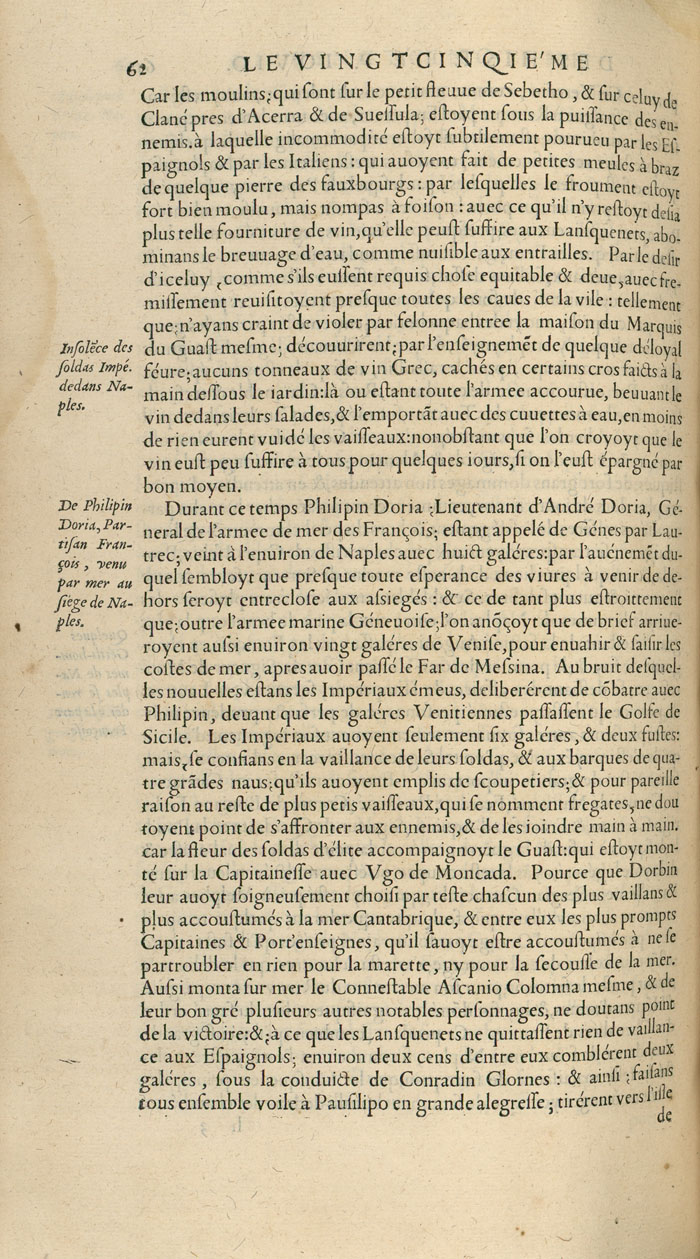 62 LE VINGTCINQIE'ME
Car les moulins; qui ſont ſur le petit fleuue de Sebetho, & ſur celuy de
Clané pres d'Acerra & de Sueſſula; eſtoyent ſous la puiſſance des en-
nemis. à laquelle incommodité eſtoyt ſubtilement pourueu par les Eſ-
paignols & par les Italiens: qui auoyent fait de petites meules à braz
de quelque pierre des fauxbourgs: par leſquelles le froument eſtoyt
fort bien moulu, mais nompas à foiſon: auec ce qu'il n'y reſtoyt deſia
plus telle fourniture de vin, qu'elle peuſt ſuffire aux Lanſquenets, abo-
minans le breuuage d'eau, comme nuiſible aux entrailles. Par le deſir
d'iceluy, comme s'ils euſſent requis choſe equitable & deue, auec fre-
miſſement reuiſitoyent preſque toutes les caues de la vile: tellement
que; n'ayans craint de violer par felonne entree la maiſon du Marquis
Inſolẽce des
ſoldas Impé.
dedans Na-
ples.
du Guaſt meſme; découurirent; par l'enſeignemẽt de quelque déloyal
féure; aucuns tonneaux de vin Grec, cachés en certains cros faicts à la
main deſſous le iardin: là ou eſtant toute l'armee accourue, beuuant le
vin dedans leurs ſalades, & l'emportãt auec des cuuettes à eau, en moins
de rien eurent vuidé les vaiſſeaux: nonobſtant que l'on croyoyt que le
vin euſt peu ſuffire à tous pour quelques iours, ſi on l'euſt épargné par
bon moyen.
De Philipin
Doria, Par-
tiſan Fran-
çois, venu
par mer au
ſiége de Na-
ples.
Durant ce temps Philipin Doria; Lieutenant d'André Doria, Gé-
neral de l'armee de mer des François; eſtant appelé de Génes par Lau-
trec; veint à l'enuiron de Naples auec huict galéres: par l'auénemẽt du-
quel ſembloyt que preſque toute eſperance des viures à venir de de-
hors ſeroyt entrecloſe aux aſsiegés: & ce de tant plus eſtroittement
que; outre l'armee marine Géneuoiſe; l'on anõçoyt que de brief arriue-
royent auſsi enuiron vingt galéres de Veniſe, pour enuahir & ſaiſir les
coſtes de mer, apres auoir paſſé le Far de Meſsina. Au bruit deſquel-
les nouuelles eſtans les Impériaux émeus, deliberérent de cõbatre auec
Philipin, deuant que les galéres Venitiennes paſſaſſent le Golfe de
Sicile. Les Impériaux auoyent ſeulement ſix galéres, & deux fuſtes:
mais, ſe confians en la vaillance de leurs ſoldas, & aux barques de qua-
tre grãdes naus; qu'ils auoyent emplis de ſcoupetiers; & pour pareille
raiſon au reſte de plus petis vaiſſeaux, qui ſe nomment fregates, ne dou
toyent point de s'affronter aux ennemis, & de les ioindre main à main.
car la fleur des ſoldas d'élite accompaignoyt le Guaſt: qui eſtoyt mon-
té ſur la Capitaineſſe auec Vgo de Moncada. Pource que Dorbin
leur auoyt ſoigneuſement choiſi par teſte chaſcun des plus vaillans &
plus accouſtumés à la mer Cantabrique, & entre eux les plus prompts
Capitaines & Port'enſeignes, qu'il ſauoyt eſtre accouſtumés à ne ſe
partroubler en rien pour la marette, ny pour la ſecouſſe de la mer.
Auſsi monta ſur mer le Conneſtable Aſcanio Colomna meſme, & de
leur bon gré pluſieurs autres notables perſonnages, ne doutans point
de la victoire: &; à ce que les Lanſquenets ne quittaſſent rien de vaillan-
ce aux Eſpaignols; enuiron deux cens d'entre eux comblérent deux
galéres, ſous la conduicte de Conradin Glornes: & ainſi; faiſans
tous enſemble voile à Pauſilipo en grande alegreſſe; tirérent vers l'iſle
de